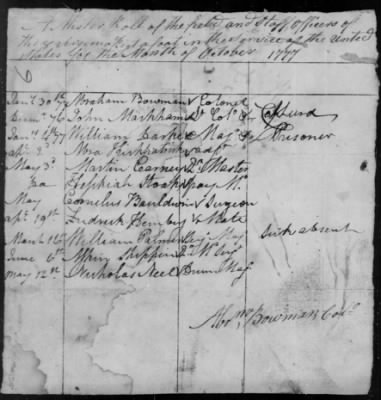 A Muster Roll of the field and Staff Officers of
the Regiment of foot in the service of the United
States for the Month of October 1777
Jan.y 30th 77 Abraham Bowman Colonel
76 John Markham Lt Col.o Cashierd
Jan.y 4 77 William Maj.r Prisoner
Apl. 2 Kirkpatrick Adjt
May 3d Martin Kearney Qr Master
Do Pay M.
May Cornelius Bauldwin Surgeon
Apl. 19th Fredrick Mate
March 16th William Palmer Serj. Maj. Sick absent
June 6th Shippen Qr M Serj.
May 12th Nicholas Neel Drum Maj.
Abrm. Bowman Col.